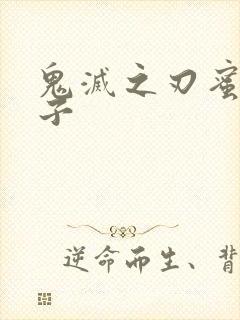 鬼滅之刃蜜
子
逆命而生、背